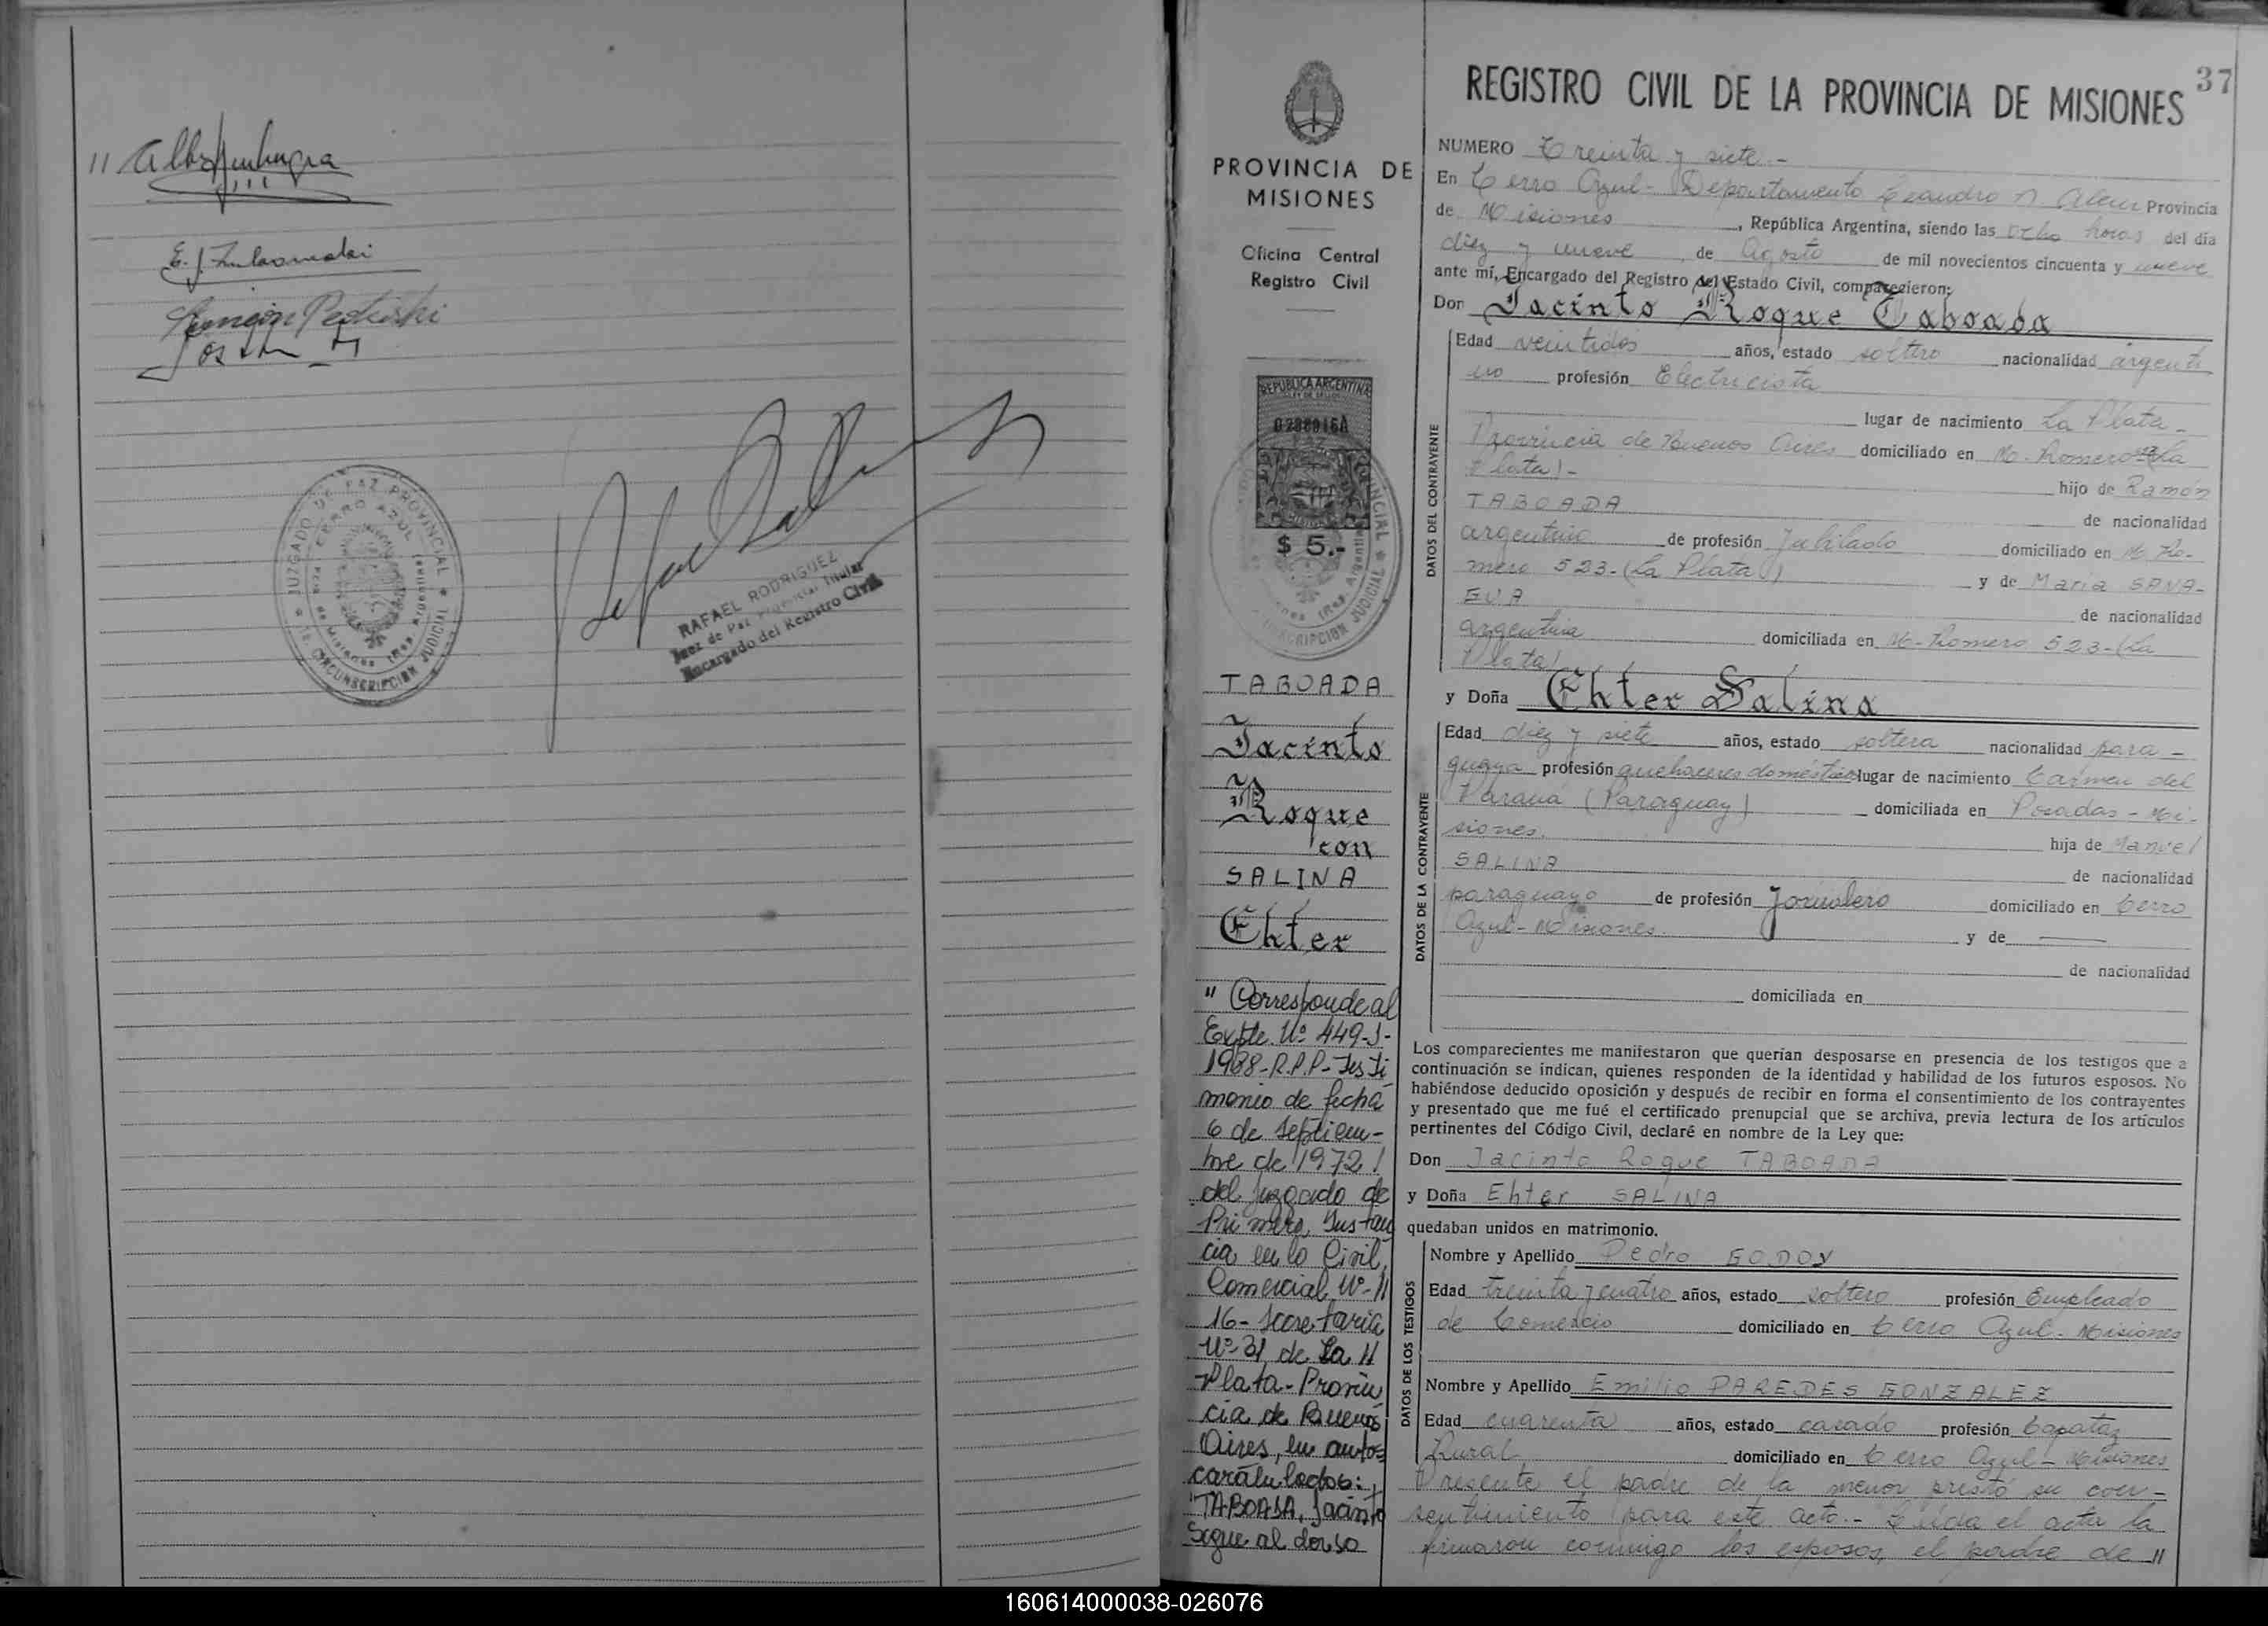 E. J.
JUZGADO DE PAZ PROVINCIAL
CERRO AZUL
Pcia. de Misiones (Rep. Argentina)
CIRCUNSCRIPCION JUDICIAL
RAFAEL RODRIGUEZ
Juez de Paz Provincial Titular
Encargado del Registro Civil
PROVINCIA DE
MISIONES
Oficina Central
Registro Civil
REPUBLICA ARGENTINA
$ 5.-
TABOADA
Jacinto
Roque
con
SALINA
Ehter
" Corresponde al
Expte. Nº 449-J-
1988-R.P.P- Testi
monio de fecha
6 de septiem-
bre de 1972!
del juzgado de
Primera Instan
cia en lo Civil,
Comercial Nº-//
16- Secretaria
Nº 31 de La //
Plata- Provin
cia de Buenos
Aires, en autos
caratulados:
"TABOADA, Jacinto
Sigue al dorso
37
REGISTRO CIVIL DE LA PROVINCIA DE MISIONES
NUMERO Treinta y siete.-
En Cerro Azul- Departamento Leandro N Alem Provincia
de Misiones, República Argentina, siendo las ocho horas del día
diez y nueve, de Agosto de mil novecientos cincuenta y nueve
ante mí, Encargado del Registro del Estado Civil, comparecieron:
Don Jacinto Roque Taboada
DATOS DEL CONTRAYENTE
Edad veintidos años, estado soltero nacionalidad argenti
no profesión Electricista
lugar de nacimiento La Plata-
Provincia de Buenos Aires domiciliado en M. Romero 523 (La
Plata)-
hijo de Ramón
TABOADA
de nacionalidad
argentino de profesión Jubilado domiciliado en M. Ro-
mero 523-(La Plata) y de María SANA-
BUA
de nacionalidad
argentina domiciliada en M- Romero 523-(La
Plata)
y Doña Ehter Salina
DATOS DE LA CONTRAYENTE
Edad diez y siete años, estado soltera nacionalidad para-
guaya profesión quehaceres domésticos lugar de nacimiento Carmen del
Paraná (Paraguay) domiciliada en Posadas - Mi-
siones.
hija de Manuel
SALINA
de nacionalidad
paraguayo de profesión Jornalero domiciliado en Cerro
Azul- Misiones. y de
de nacionalidad
domiciliada en
Los comparecientes me manifestaron que querían desposarse en presencia de los testigos que a
continuación se indican, quienes responden de la identidad y habilidad de los futuros esposos. No
habiéndose deducido oposición y después de recibir en forma el consentimiento de los contrayentes
y presentado que me fué el certificado prenupcial que se archiva, previa lectura de los artículos
pertinentes del Código Civil, declaré en nombre de la Ley que:
Don Jacinto Roque TABOADA
y Doña Ehter SALINA
quedaban unidos en matrimonio.
DATOS DE LOS TESTIGOS
Nombre y Apellido Pedro GODOY
Edad treinta y cuatro años, estado soltero profesión Empleado
de Comercio domiciliado en Cerro Azul- Misiones
Nombre y Apellido Emilio PAREDES GONZALEZ
Edad cuarenta años, estado casado profesión Capataz
Rural domiciliado en Cerro Azul- Misiones
Presente el padre de la menor prestó su con-
sentimiento para este acto.- Leída el acta la
firmaron conmigo los esposos, el padre de //
160614000038-026076